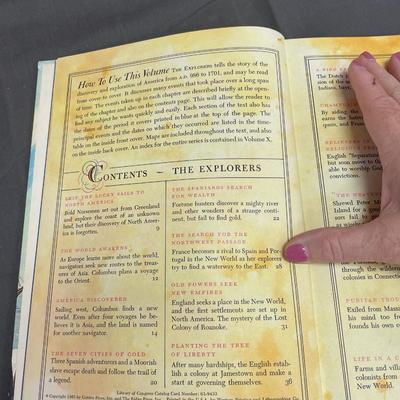 How To Use This Volume THE EXPLORERS tells the story of the
discovery and exploration of America from A.D. 986 to 1701, and may be read
from cover to cover. It discusses many events that took place over a long span
of time. The events taken up in each chapter are described briefly at the open-
ing of the chapter and also on the contents page. This will allow the reader to
find any subject he wants quickly and easily. Each section of the text also has
the dates of the period it covers printed in blue at the top of the page. The
principal events and the dates on which they occurred are listed in the time-
table on the inside front cover. Maps are included throughout the text, and also
on the inside back cover. An index for the entire series is contained in Volume X.
CONTENTS ~ THE EXPLORERS
SHIP THE LUCKY SAILS TO
NORTH AMERICA
Bold Norsemen set out from Greenland
and explore the coast of an unknown
land, but their discovery of North Amer-
ica is forgotten. 9
THE WORLD AWAKENS
As Europe learns more about the world,
navigators seek new routes to the treas-
ures of Asia. Columbus plans a voyage
to the Orient. 12
AMERICA DISCOVERED
Sailing west, Columbus finds a new
world. Even after four voyages he be-
lieves it is Asia, and the land is named
for another navigator. 14
THE SEVEN CITIES OF GOLD
Three Spanish adventurers and a Moorish
slave escape death and follow the trail of
a legend. 20
THE SPANIARDS SEARCH
FOR WEALTH
Fortune hunters discover a mighty river
and other wonders of a strange conti-
nent, but fail to find gold. 22
THE SEARCH FOR THE
NORTHWEST PASSAGE
France becomes a rival to Spain and Por-
tugal in the New World as her explorers
try to find a waterway to the East. 28
OLD POWERS SEEK
NEW EMPIRES
England seeks a place in the New World,
and the first settlements are set up in
North America. The mystery of the Lost
Colony of Roanoke. 31
PLANTING THE TREE
OF LIBERTY
After many hardships, the English estab-
lish a colony at Jamestown and make a
start at governing themselves. 36
Library of Congress Catalog Card Number: 63-9433
The Dutch
of the
Indians, Sav
CHAMP
earns the
spute, and
Fran
RELIGIOUS
English "Separa
soon be able to
worship God
convictions.
Shrewd Peter
Island for
sors fail to
as an
through the wilder
colonies in Connecti
PURITAN
Exiled from Mass
his mind too
founds his own
LIFE IN A
Farms and villa
colonists from